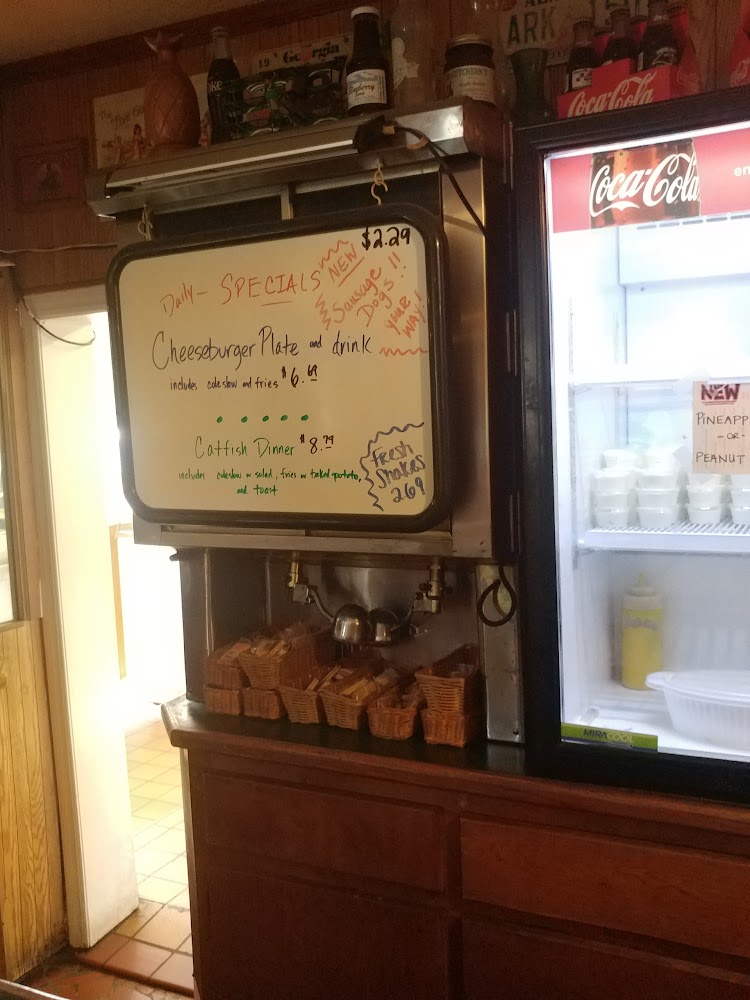 19 Georgia
ARK
Coke
Coca-Cola
Coca-Cola
en
$2.29
Daily - SPECIALS
NEW
Sausage !!
Dogs
your
WAY!
Cheeseburger Plate and drink
includes coleslaw and fries $6.69
Catfish Dinner $8.79
includes coleslaw or salad, fries or baked potato,
and toast
Fresh
Shakes
2.69
NEW
PINEAPP
- OR -
PEANUT
MIRACOOL